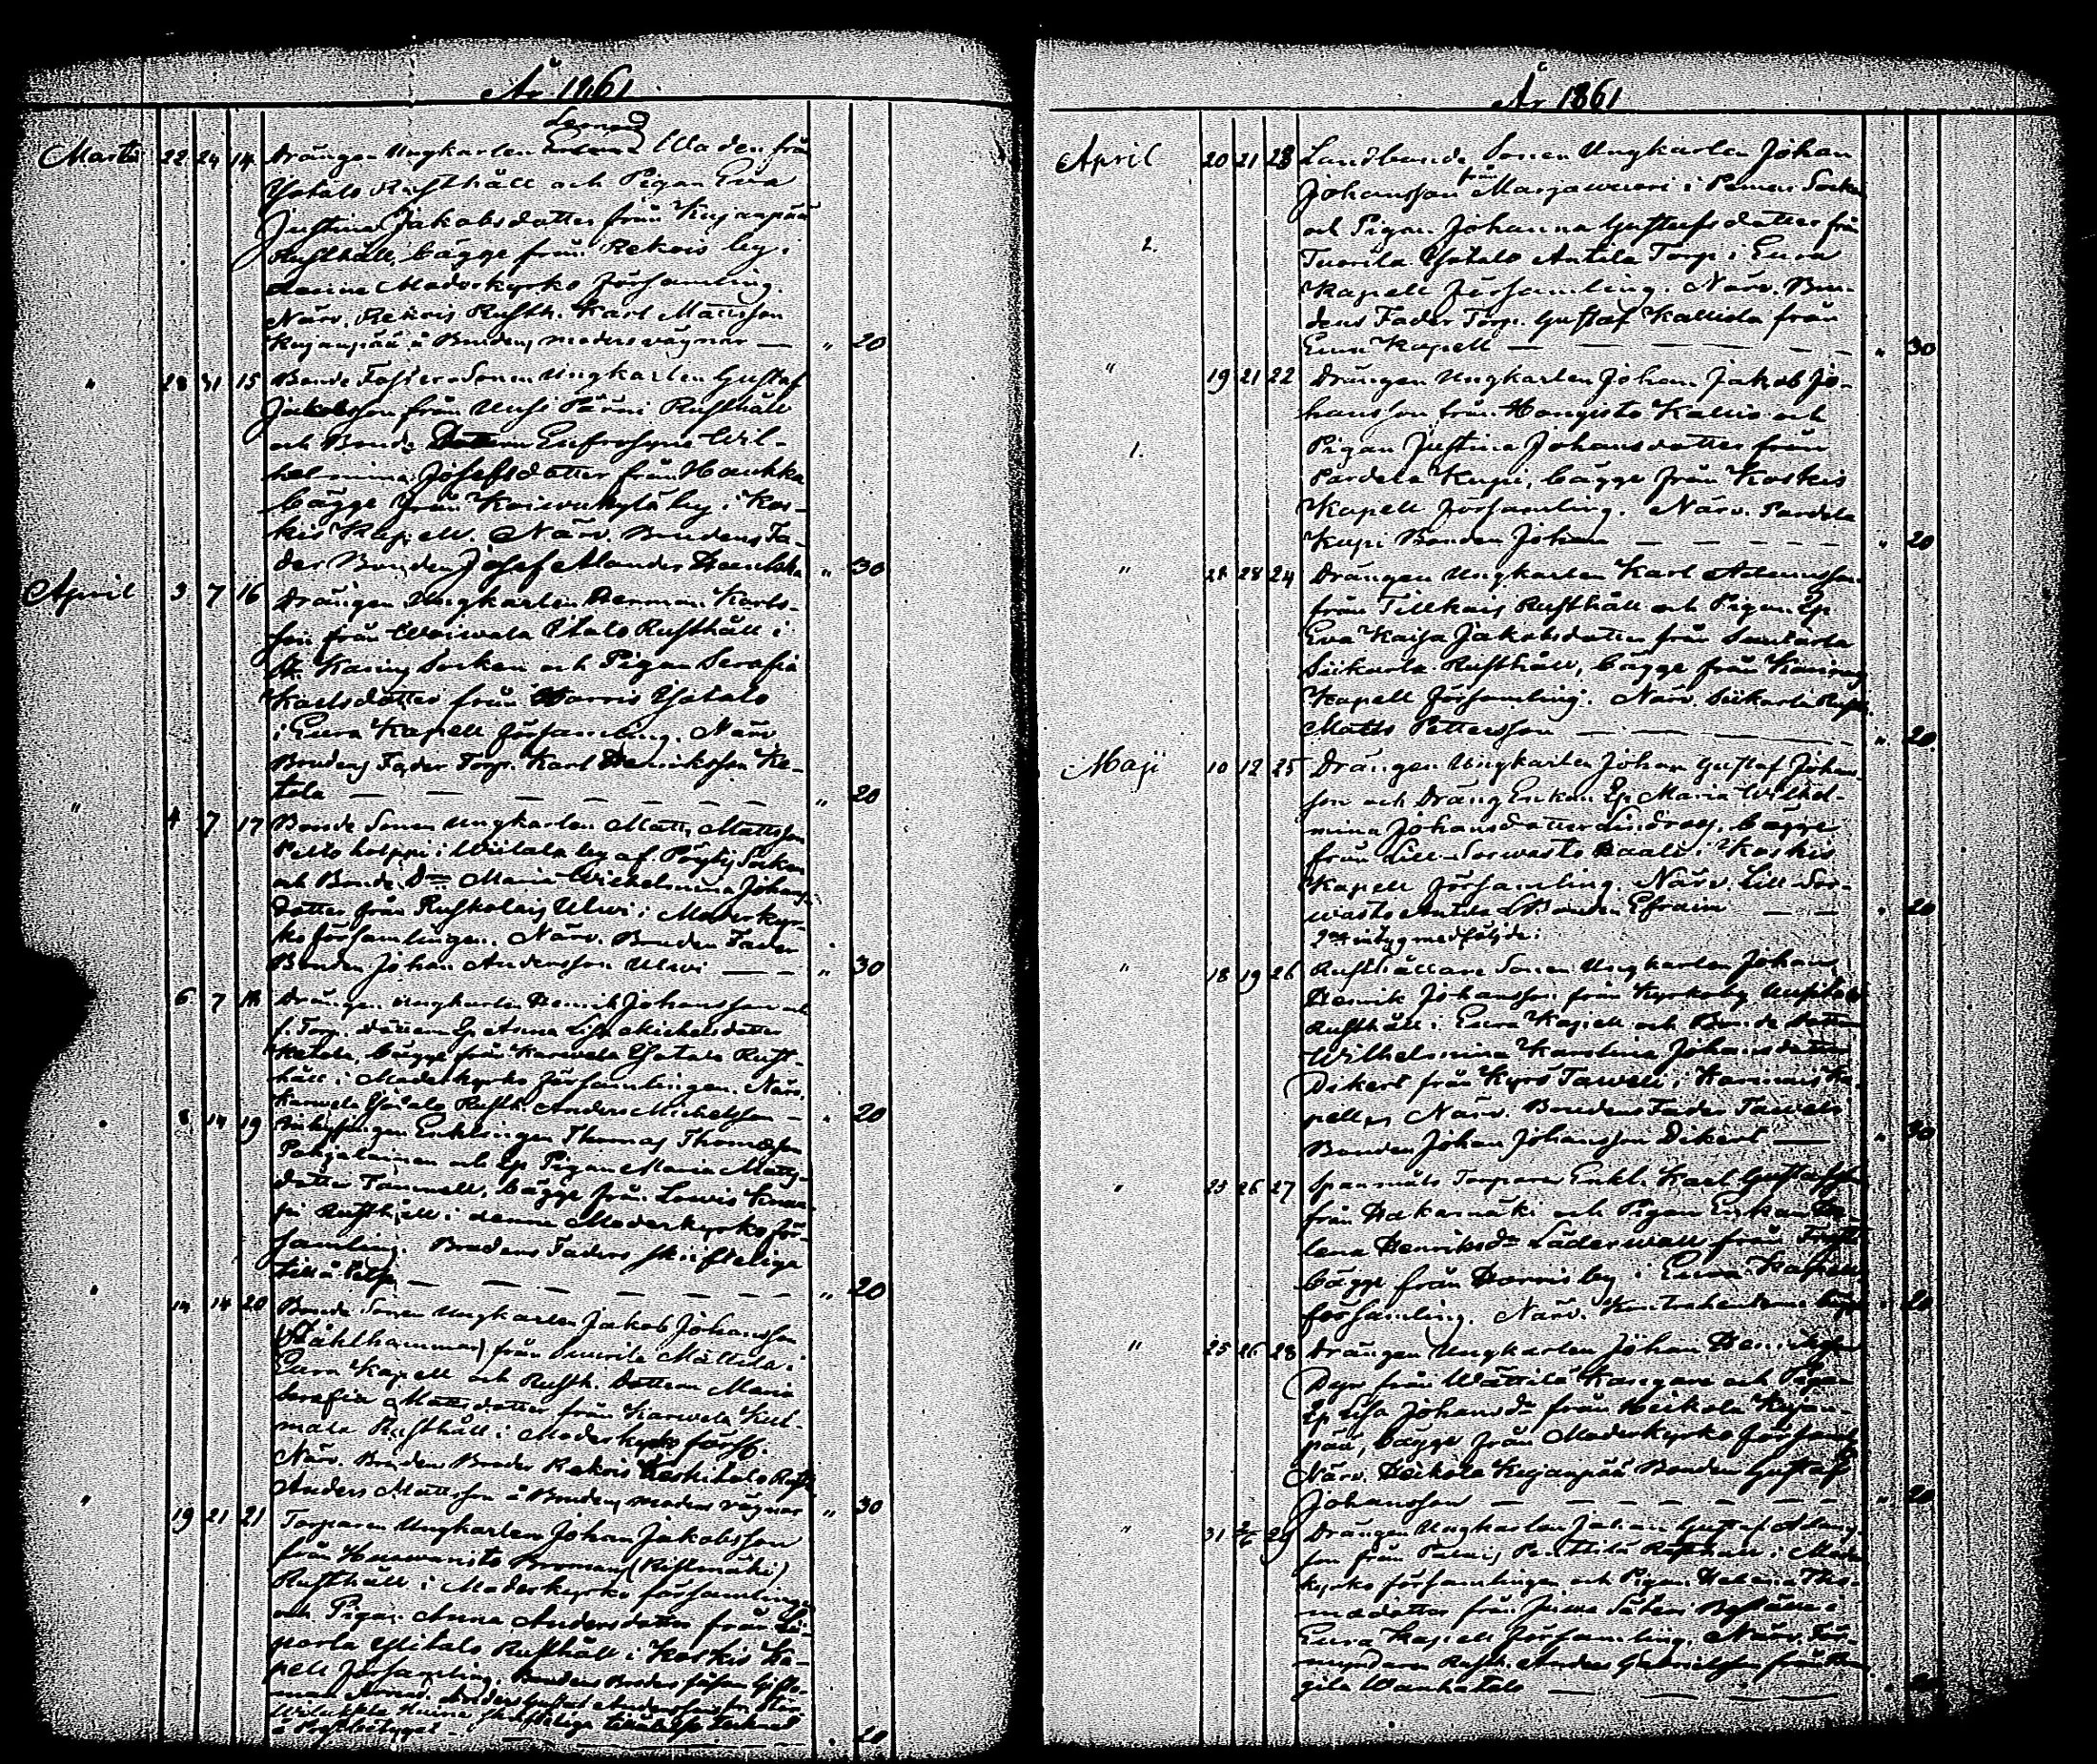 År 1861
Martii 22 24 14 Drängen Ungkarlen Uladen från
Yatalo Rusthåll och Pigan Eva
Justina Jakobsdotter från Kujanpää
Rusthåll, bägge från Rekois by i
denne Moderkyrko Församling.
Närv. Rekois Rusth. Karl Mattsson
Kujanpää å Brudens moders vägnar — " 20
" 28 31 15 Bonde Foster Sonen Ungkarlen Gustaf
Jakobsson från Uusi Pärni Rusthåll
och Bonde Dottern Eufrosyne Wil-
helmina Josefsdotter från Haukka
bägge från Koiwukylä by i Kos-
kis Kapell. Närv. Brudens Fa-
der Bonden Josef Alander Haukka " 30
April 3 7 16 Drängen Ungkarlen Herman Karls-
son från Woiwala Ylitalo Rusthåll i
St. Karins Socken och Pigan Serafia
Karlsdotter från Horris Yatalo
i Eura Kapell församling. Närv.
Brudens Fader Torp. Karl Henriksson Ke-
tola — — — — — — " 20
" 4 7 17 Bonde Sonen Ungkarlen Matts Mattsson
Peltoholppi i Wiitala by af Pöytis Socken
och Bonde Dr Maria Wilhelmina Johans-
dotter från Ruskolais Ulwi i Moderkyr-
ko församlingen. Närv. Brudens Fader
Bonden Johan Andersson Ulwi — — " 30
6 7 18 Drängen Ungkarlen Henrik Johansson och
f. Torp. dottern Ep. Anna Lisa Michelsdotter
Ketola, bägge från Karwela Yatalo Rust-
håll i Moderkyrko församlingen. Närv.
Karwela Yatalo Rusth. Anders Michelsson — " 20
" 8 14 19 Enklingen Thomas Thomasson
Pohjalainen och Ep. Pigan Maria Matts-
dotter Tammell, bägge från Lewis
Rusthåll i denne Moderkyrko för-
samling. Brudens Faders skriftelige
tillåtelse — — — — — " 20
" 14 14 20 Bonde Sonen Ungkarlen Jakob Johansson
(Ståhlhammar) från Tuorila Mattila i
Eura Kapell och Rusth. Dottern Maria
Serafia Mattsdotter från Karwela Kul-
mala Rusthåll i Moderkyrko förs.
Närv. Brudens Broder Rekois Keskitalo Rusth.
Anders Mattsson å Brudens moders vägnar " 30
" 19 21 21 Torparen Ungkarlen Johan Jakobsson
från Broman (Ristimäki)
Rusthåll i Moderkyrko församlingen
och Pigan Anna Andersdotter från Li-
parla Ylitalo Rusthåll i Koskis Ka-
pell församling. Brudens Broder såsom Gifto-
man
skriftliga tillåtelse
" 20
År 1861
April 20 21 23 Landbonde Sonen Ungkarlen Johan
Johansson från Marjawuori i Pemar Socken
och Pigan Johanna Gustafsdotter från
2. Tuorila Yatalo Antila Torp i Eura
Kapell församling. Närv. Bru-
dens Fader Torp. Gustaf Kallista från
Eura Kapell — — — — — " 30
" 19 21 22 Drängen Ungkarlen Johan Jakob Jo-
hansson från Hongisto Kallio och
1. Pigan Justina Johansdotter från
Pardela Kupi, bägge från Koskis
Kapell församling. Närv. Pardela
Kupi Bonden Johan — — — — " 20
" 28 28 24 Drängen Ungkarlen Karl Adamsson
från Tillkais Rusthåll och Pigan Ep.
Eva Kaisa Jakobsdotter från
Siikarla Rusthåll, bägge från Karinais
Kapell församling. Närv. Siikarla Rusth.
Matts Pettersson — — — — " 20
Maji 10 12 25 Drängen Ungkarlen Johan Gustaf Johans-
son och Dräng Enkan Ep. Maria Wilhel-
mina Johansdotter Lindroos, bägge
från Lill Sorwasto Haalo i Koskis
Kapell församling. Närv. Lill Sor-
wasto Antila LBonden Efraim — — " 20
intyg medföljde.
" 18 19 26 Rusthållare Sonen Ungkarlen Johan
Henrik Johansson från Kyrkoby Uusitalo
Rusthåll i Eura Kapell och Bonde Dottern
Wilhelmina Karolina Johansdotter
Dikert från Kyrö Taweli i Karinais Ka-
pell, Närv. Brudens Fader Taweli
Bonden Johan Johansson Dikert — " 30
" 25 26 27 Spanmåls Torparen Enkl. Karl Gustafsson
från Hakamäki och Pigan Enkan He-
lena Henriksdr Läderwall från
bägge från Horris by i Eura Kapell
församling. Närv. Kontrahenterne begge " 20
" 25 26 28 Drängen Ungkarlen Johan Henriksson
Dyr från Wättilä Kangare och Pigan
Ep. Lisa Johansdr från Heikola Kujan-
pää, bägge från Moderkyrko församl.
Närv. Heikola Kujanpää Bonden Gustaf
Johansson — — — — — " 20
" 31 2/6 29 Drängen Ungkarlen Johan Gustaf Adams-
son från Palais Penttilä Rusthåll i Moder-
kyrko församlingen och Pigan Helena Tho-
madotter från Juwa Säteri Rusthåll i
Eura Kapell församling. Närv. För-
myndaren Rusth. Anders Gabrielsson från
gila Wanhatalo — — — — " 20